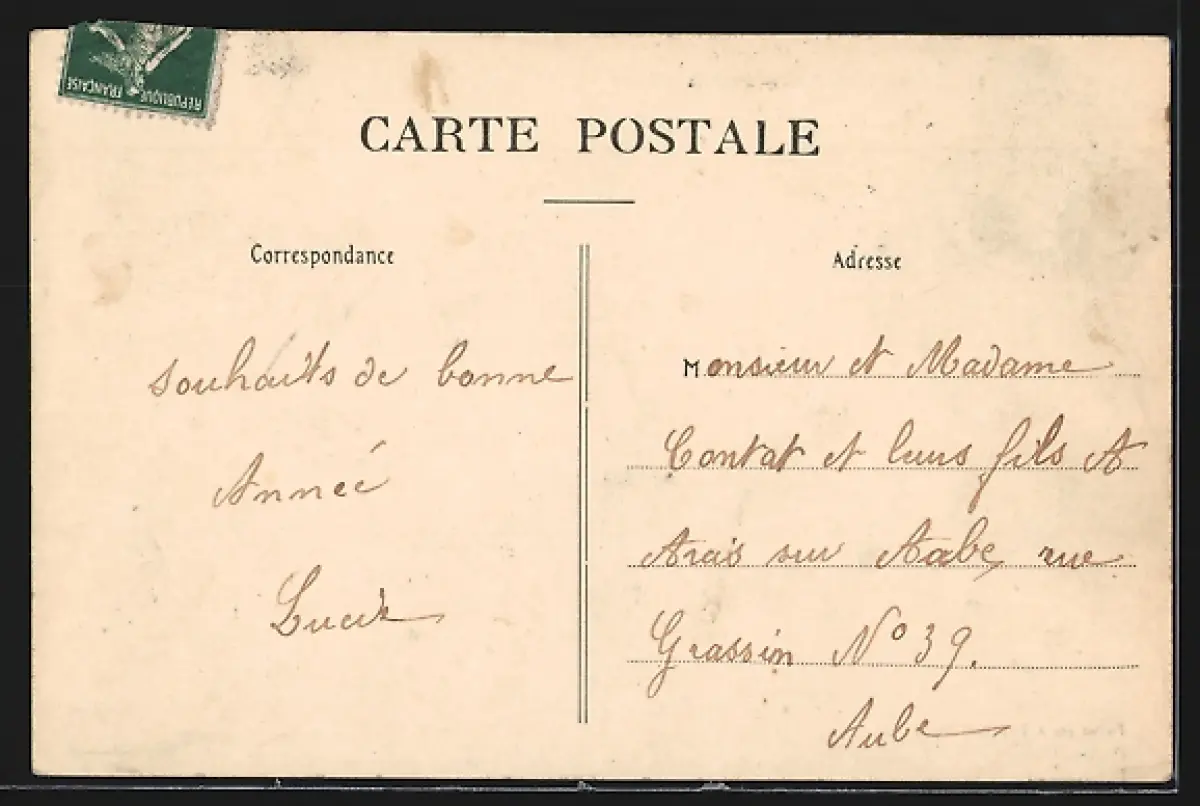 RÉPUBLIQUE FRANÇAISE
CARTE POSTALE
Correspondance
souhaits de bonne
Année
Adresse
Monsieur et Madame
Contat et leurs fils A
Arcis sur Aube, rue
Grassin No 39.
Aube